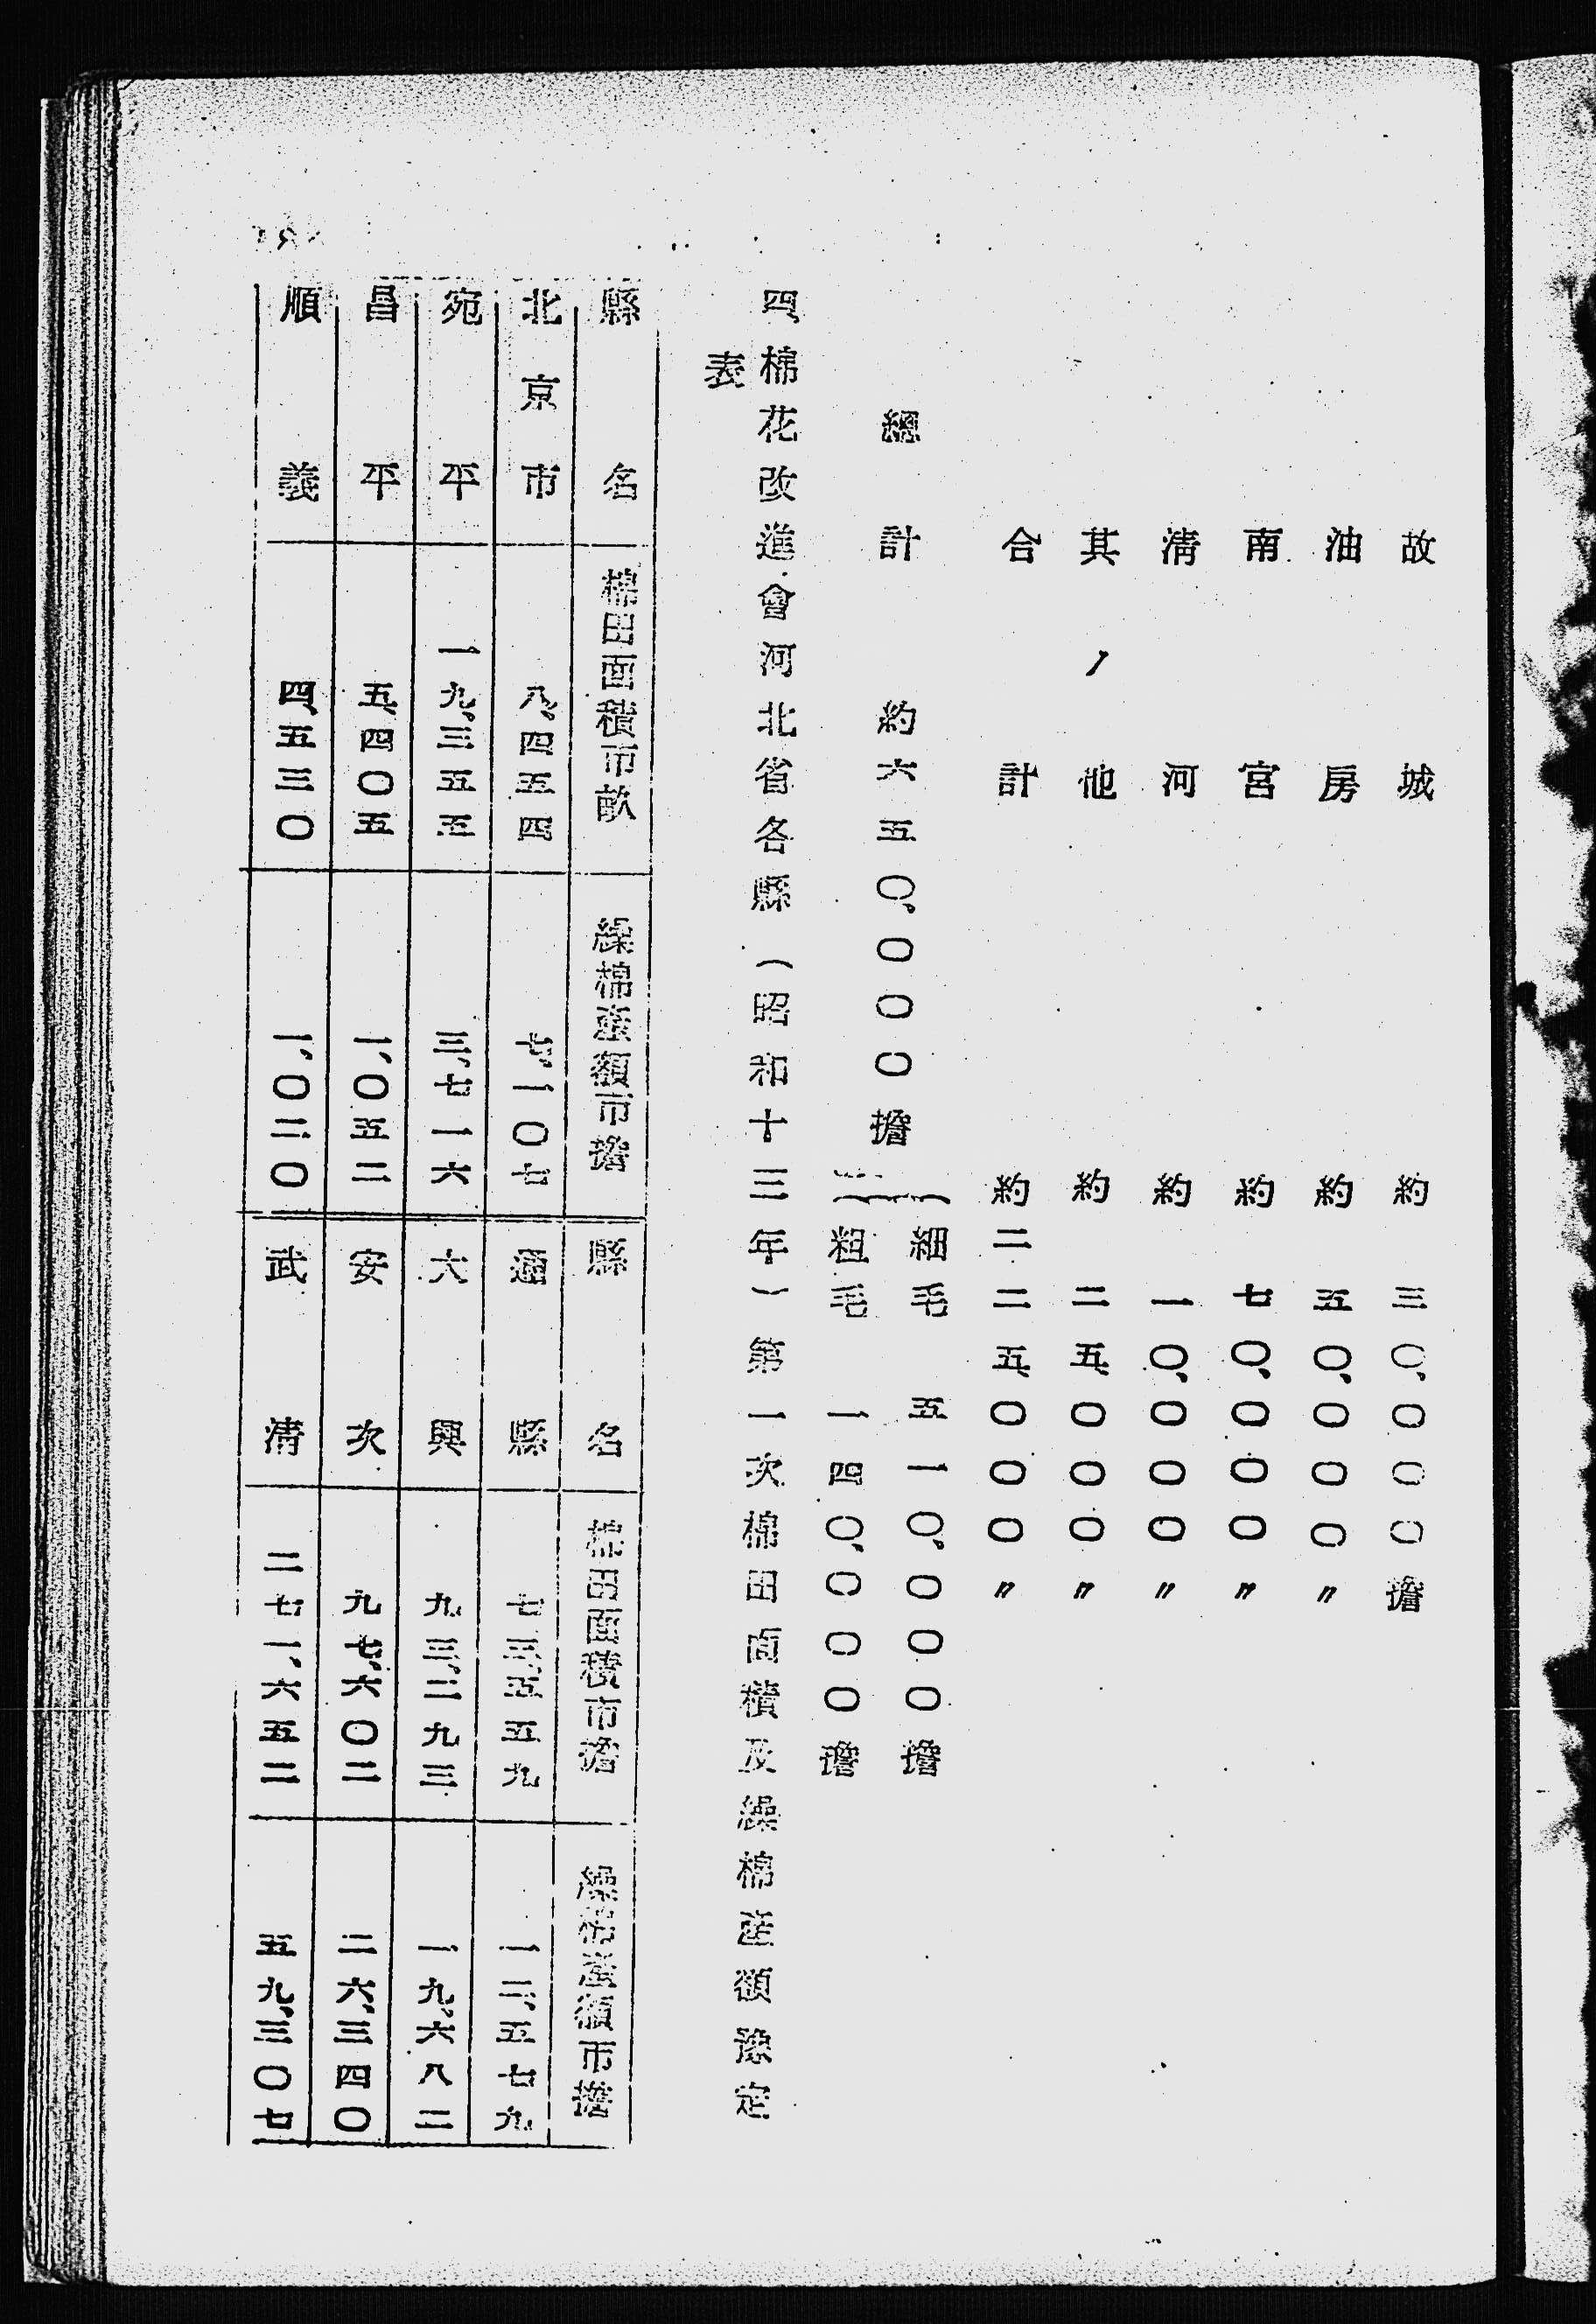 故城 約三〇、〇〇〇擔
油房 約五〇、〇〇〇〃
南宮 約七〇、〇〇〇〃
淸河 約一〇、〇〇〇〃
其ノ他 約二五、〇〇〇〃
合計 約二二五、〇〇〇〃
總計 約六五〇、〇〇〇擔
細毛 五一〇、〇〇〇擔
粗毛 一四〇、〇〇〇擔
四、棉花改進會河北省各縣（昭和十三年）第一次棉田面積及繰棉產額豫定
表
縣名 棉田面積市畝 繰棉產額市擔 縣名 棉田面積市擔 繰棉產額市擔
北京市 八、四五四 七、一〇七 通縣 七三、五五九 一二、五七九
宛平 一九、三五五 三、七一六 大興 九三、二九三 一九、六八二
昌平 五、四〇五 一、〇五二 安次 九七、六〇二 二六、三四〇
順義 四、五三〇 一、〇二〇 武淸 二七一、六五二 五九、三〇七